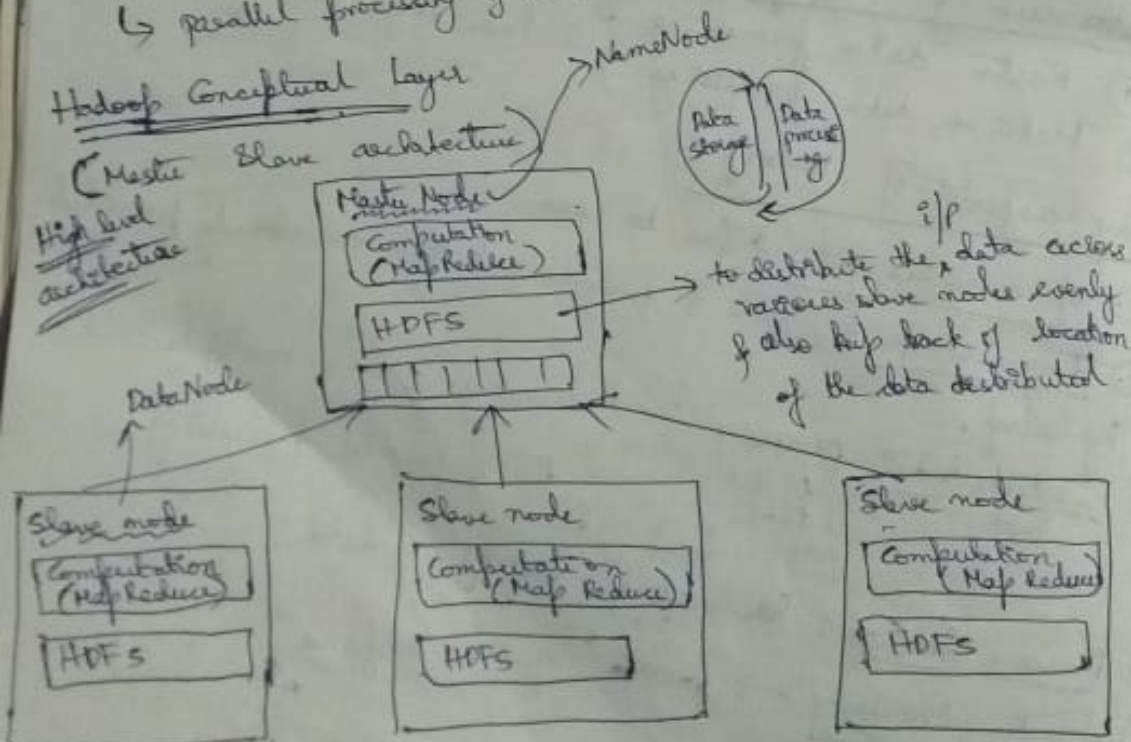 ↳ parallel processing
Hadoop Conceptual Layer
(Master Slave architecture)
High level
architecture
NameNode
Data
storage
Data
process
-ng
Master Node
Computation
(MapReduce)
HDFS
i/p
to distribute the data across
various slave nodes evenly
& also keep track of location
of the data distributed.
DataNode
Slave node
Computation
(Map Reduce)
HDFS
Slave node
Computation
(Map Reduce)
HDFS
Slave node
Computation
(Map Reduce)
HDFS